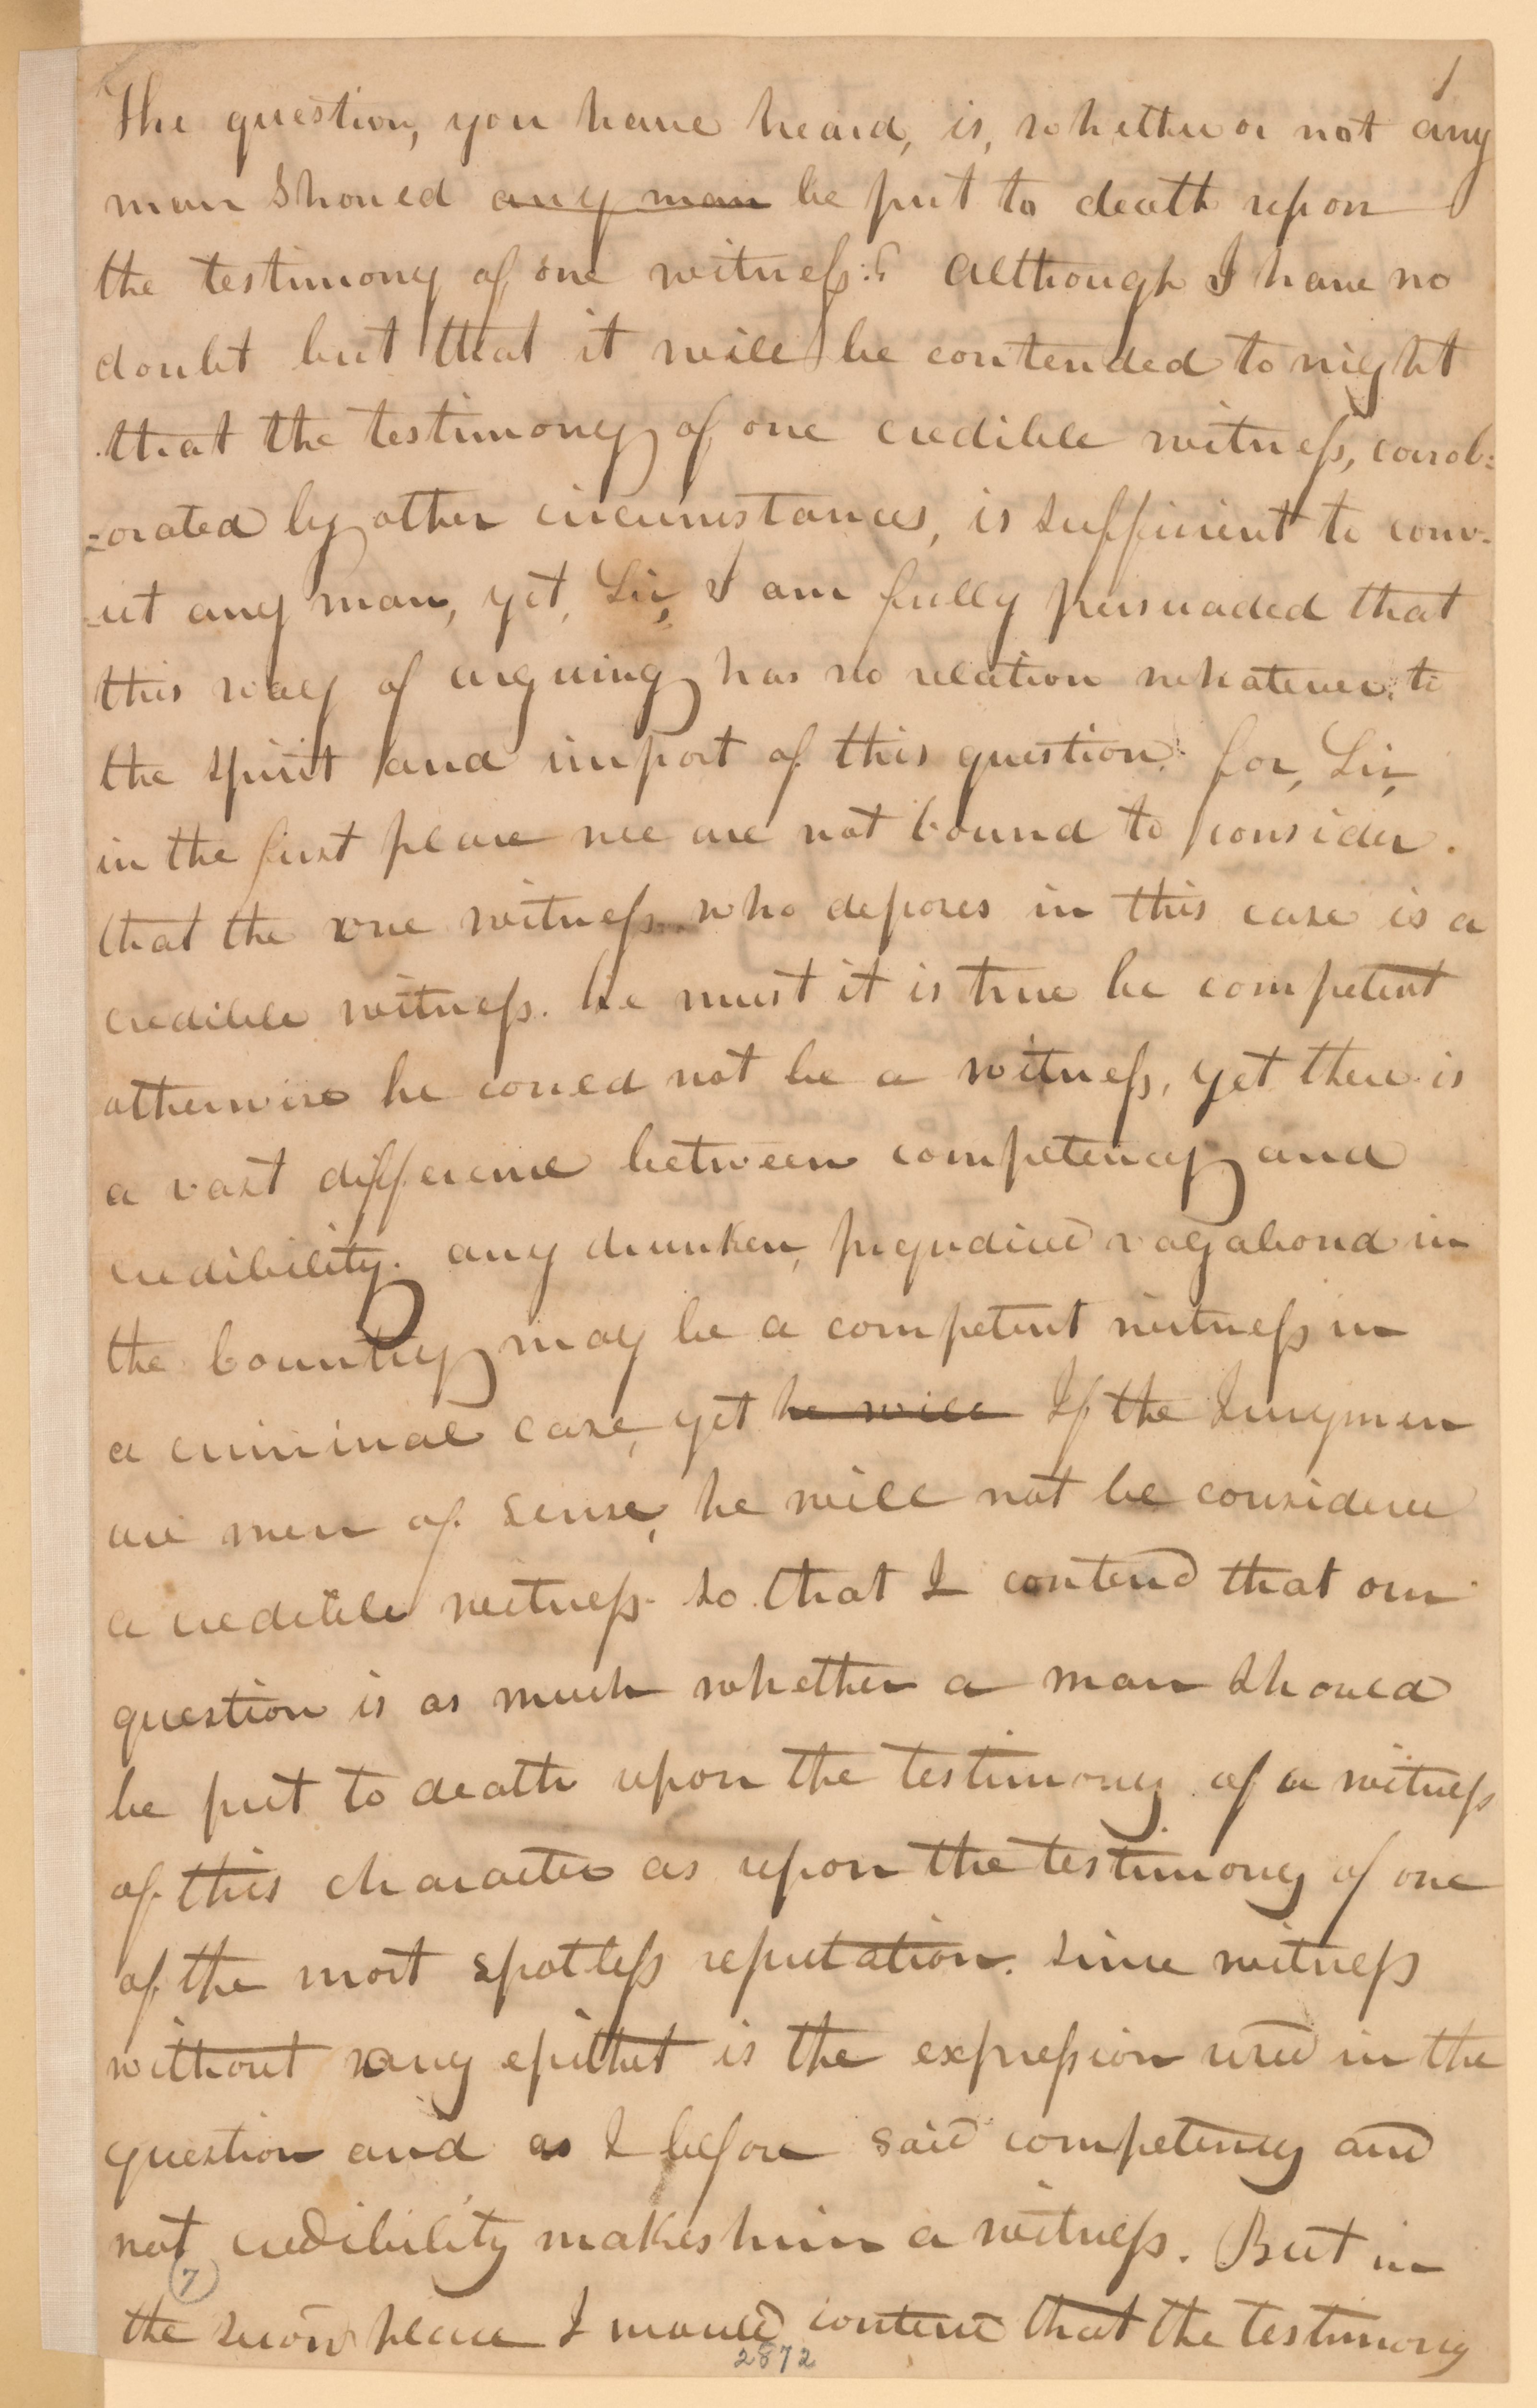 1
The question, you have heard, is, whether or not any
man should any man be put to death upon
the testimony of one witness:? Although I have no
doubt but that it will be contended to night
that the testimony of one credible witness, corrob=
=orated by other circumstances, is sufficient to conv-
-ict any man, yet, Sir, I am fully persuaded that
this way of arguing has no relation whatever to
the spirit and import of this question. for, Sir,
in the first place we are not bound to consider
that the one witness who deposes in this case is a
credible witness. he must it is true be competent
otherwise he could not be a witness, yet there is
a vast difference between competency and
credibility. any drunken, prejudiced vagabond in
the country may be a competent witness in
a criminal case, yet he will If the Jurymen
are men of sense, he will not be considered
a credible witness. so that I contend that our
question is as much whether a man should
be put to death upon the testimony of a witness
of this character as upon the testimony of one
of the most spotless reputation. since witness
without any epithet is the expression used in the
question and as I before said competency and
not credibility makes him a witness. But in
7
the second place I would contend that the testimony
2872